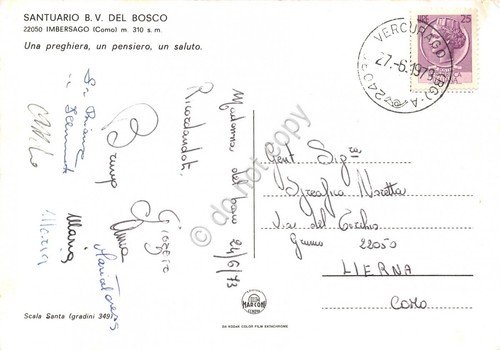 SANTUARIO B. V. DEL BOSCO
22050 IMBERSAGO (Como) m. 310 s. m.
Una preghiera, un pensiero, un saluto.
VERCURAGO (BG)
27.-6.1973
25
Madonna del bosco 24/6/73
Ricordandoti
Bruna
Giorgio
Anna
Maria
Maria Teresa
Gent. Sig.ra
Noretta
Via del
22050
LIERNA
COMO
MARCONI
GENOVA
DA KODAK COLOR FILM EKTACHROME
Scala Santa (gradini 349)
do not copy